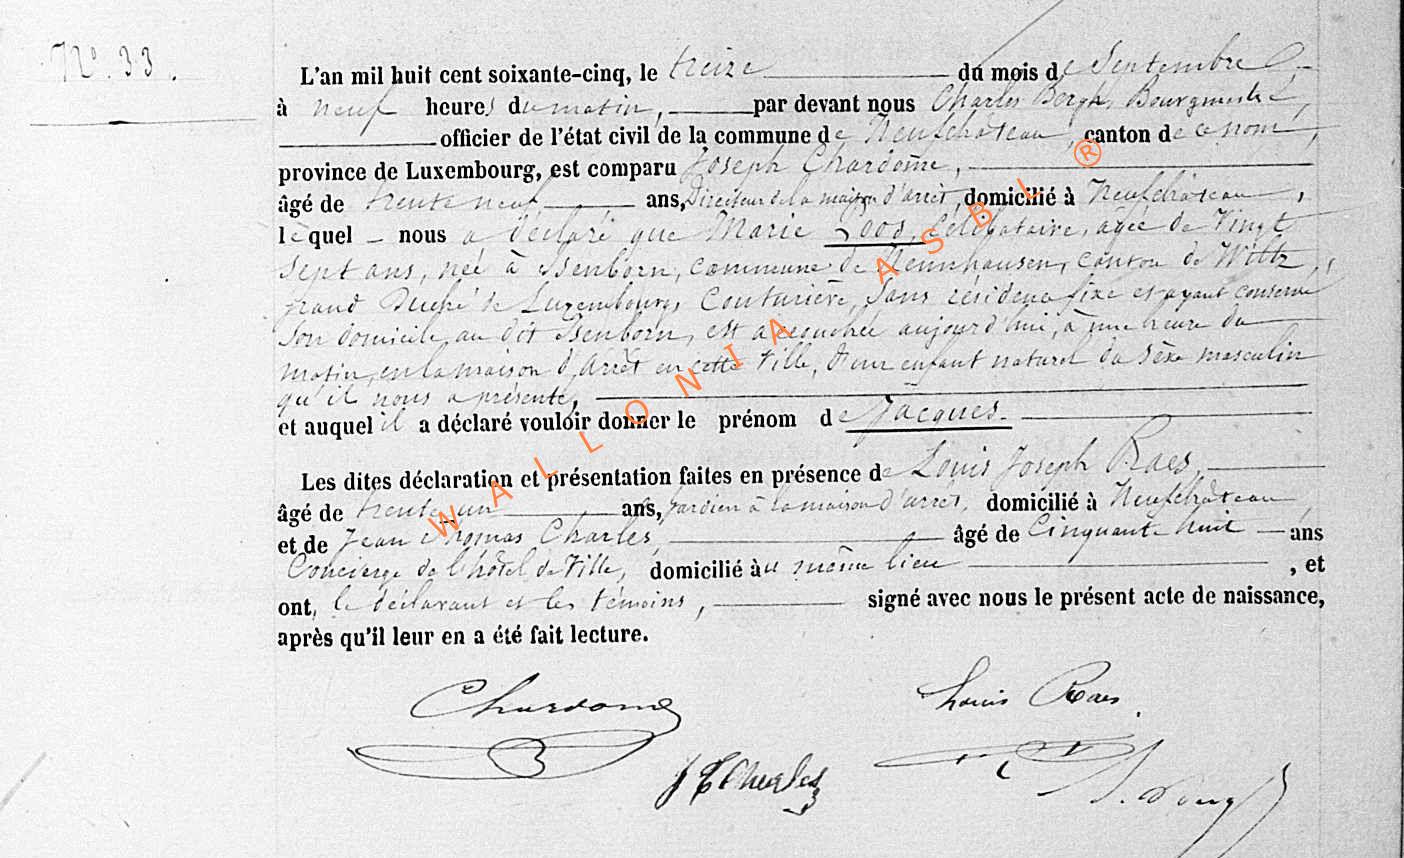 N° 33.
L'an mil huit cent soixante-cinq, le treize du mois de Septembre,
à neuf heures du matin, par devant nous Charles Bergh, Bourgmestre,
officier de l'état civil de la commune de Neufchâteau, canton de ce nom,
province de Luxembourg, est comparu Joseph Chardome,
âgé de trente neuf ans, Directeur de la maison d'arrêt, domicilié à Neufchâteau,
lequel nous a déclaré que Marie Loos, Célibataire, agée de Vingt
Sept ans, née à Isenborn, Commune de Neunhausen, canton de Wiltz,
grand Duché de Luxembourg, Couturière, Sans résidence fixe et ayant conservé
Son domicile au dit Isenborn, est accouchée aujourd'hui, à une heure du
matin, en la maison d'arrêt en cette Ville, d'un enfant naturel du Sèxe masculin
qu'il nous a présenté,
et auquel il a déclaré vouloir donner le prénom de Jacques
Les dites déclaration et présentation faites en présence de Louis Joseph Raes,
âgé de trente un ans, gardien à la maison d'arrêt, domicilié à Neufchâteau
et de Jean Thomas Charles, âgé de Cinquante huit ans
Concierge de l'hôtel de Ville, domicilié au même lieu, et
ont, le déclarant et les témoins, signé avec nous le présent acte de naissance,
après qu'il leur en a été fait lecture.
Chardome
Louis Raes
J T Charles
WALLONIA ASBL ®